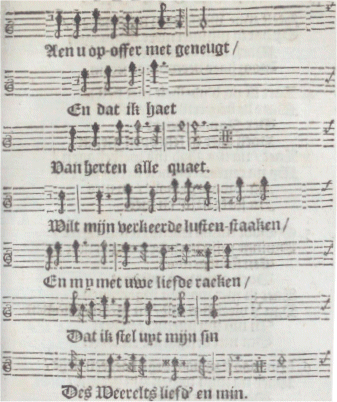 Aen u op-offer met geneugt/
En dat ik haet
Van herten alle quaet.
Wilt mijn verkeerde lusten-staaken/
En my met uwe liefde raeken/
Dat ik stel uyt mijn sin
Des Weerelts liefd' en min.